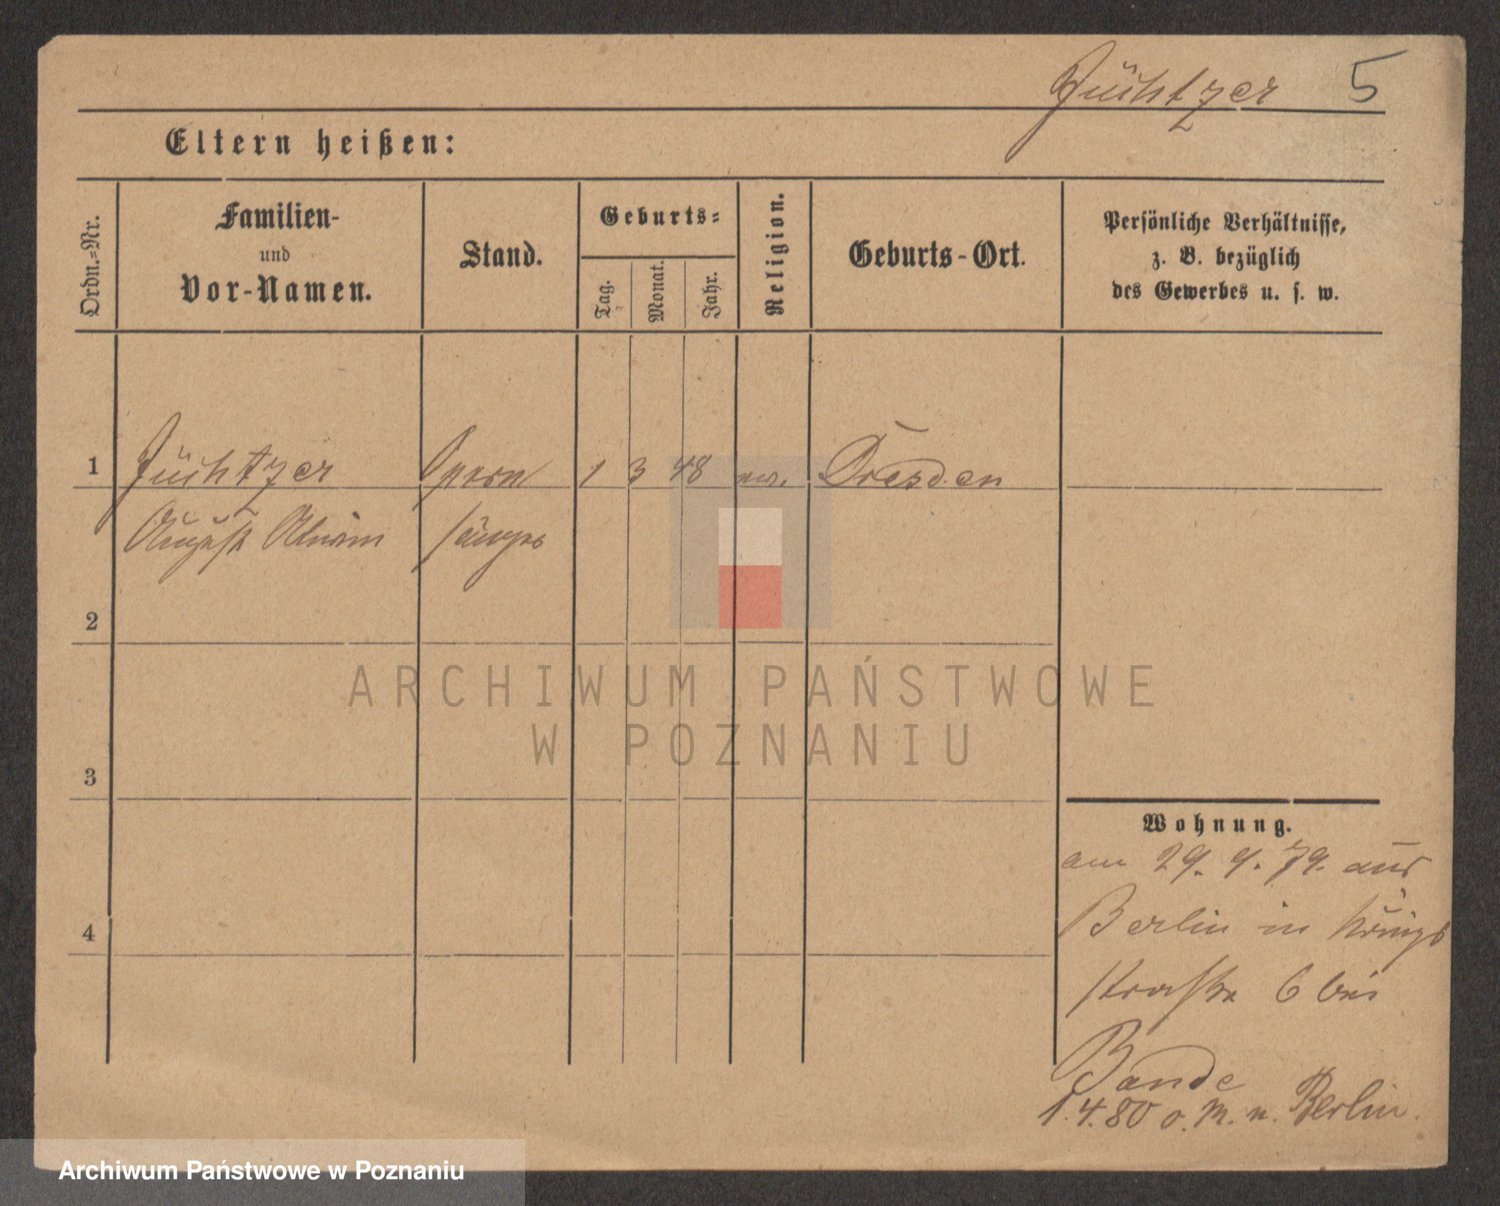 Jüchtzer 5
Eltern heißen:
Ordn.-Nr.
Familien-
und
Vor-Namen.
Stand.
Geburts-
Tag.
Monat.
Jahr.
Religion.
Geburts-Ort.
Persönliche Verhältnisse,
z. B. bezüglich
des Gewerbes u. s. w.
1 Jüchtzer Opern 1 3 48 ev. Dresden
August Alwin sänger
2
3
4
Wohnung.
am 29. 9. 79. aus
Berlin in Königs
straße 6 bei
Bande
1.4.80 o. M. n. Berlin.
ARCHIWUM PAŃSTWOWE
W POZNANIU
Archiwum Państwowe w Poznaniu